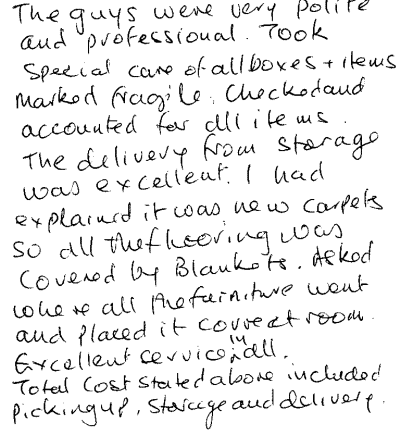 The guys were very polite
and professional. Took
Special care of all boxes + items
marked fragile. Checked and
accounted for all items.
The delivery from storage
was excellent. I had
explained it was new carpets
so all the flooring was
covered by Blankets. Asked
where all the furniture went
and placed it correct room.
Excellent service in all.
Total cost stated above included
picking up, storage and delivery.